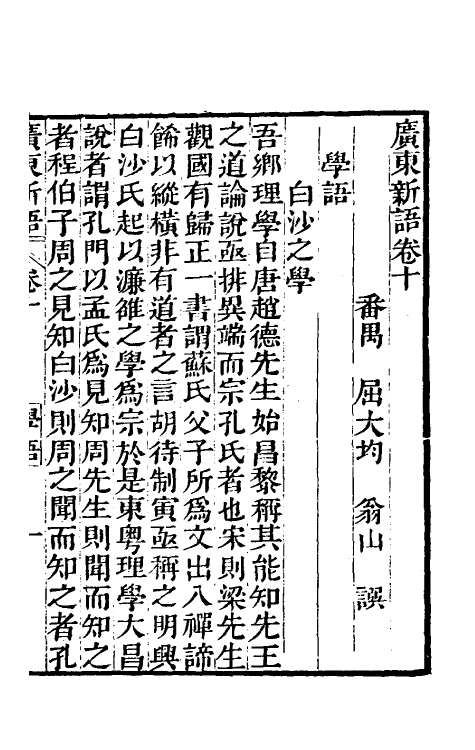 廣東新語卷十
番禺 屈大均 翁山 譔
學語
白沙之學
吾鄉理學自唐趙德先生始昌黎稱其能知先王
之道論說亟排異端而宗孔氏者也宋則梁先生
觀國有歸正一書謂蘇氏父子所爲文出入禪諦
餙以縱橫非有道者之言胡待制寅亟稱之明興
白沙氏起以濂雒之學爲宗於是東粵理學大昌
說者謂孔門以孟氏爲見知周先生則聞而知之
者程伯子周之見知白沙則周之聞而知之者孔
廣東新語 卷十 學語 一